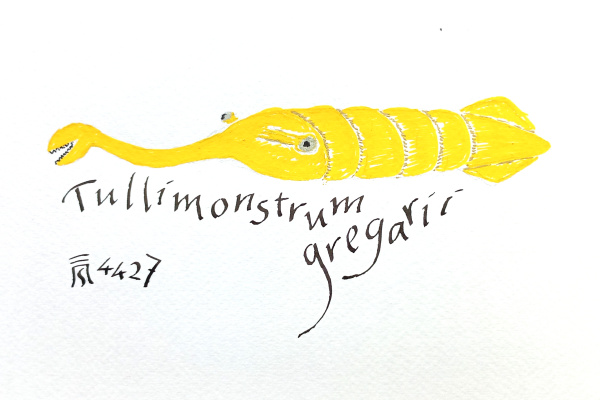 Tullimonstrum
gregarii
4427